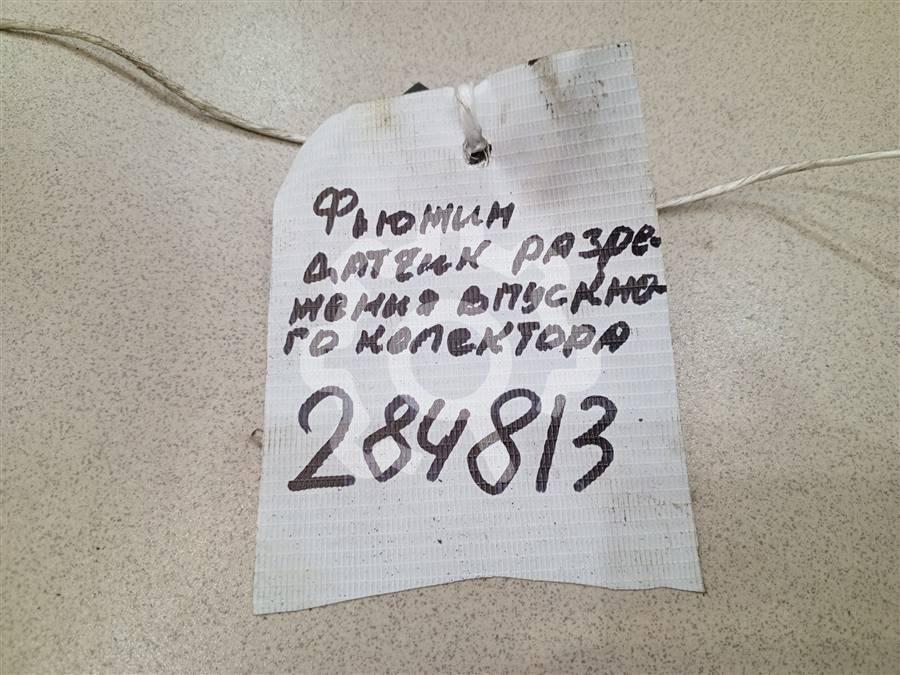 Флюмин
датчик разре-
жения впускно-
го колектора
284813